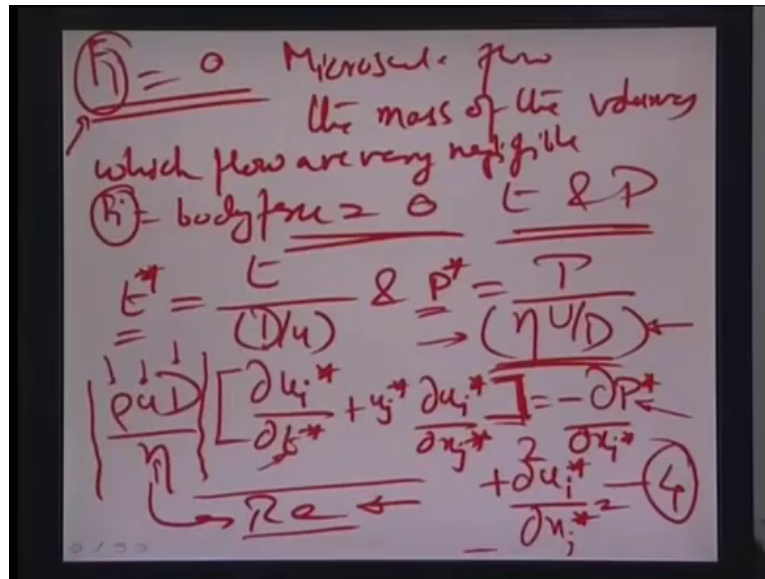 Fi = 0 Microscale flow
the mass of the volumes
which flow are very negligible
Fi = body force = 0 t & P
t* = t/(D/u) & P* = P/(ηU/D)
ρuD/η [∂ui*/∂t* + uj* ∂ui*/∂xj*] = -∂P*/∂xi*
+ ∂²ui*/∂xj*² — 4
Re